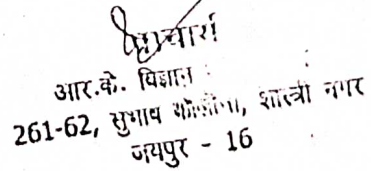 प्राचार्य
आर.के. विज्ञान
261-62, सुभाष कॉलोनी, शास्त्री नगर
जयपुर - 16